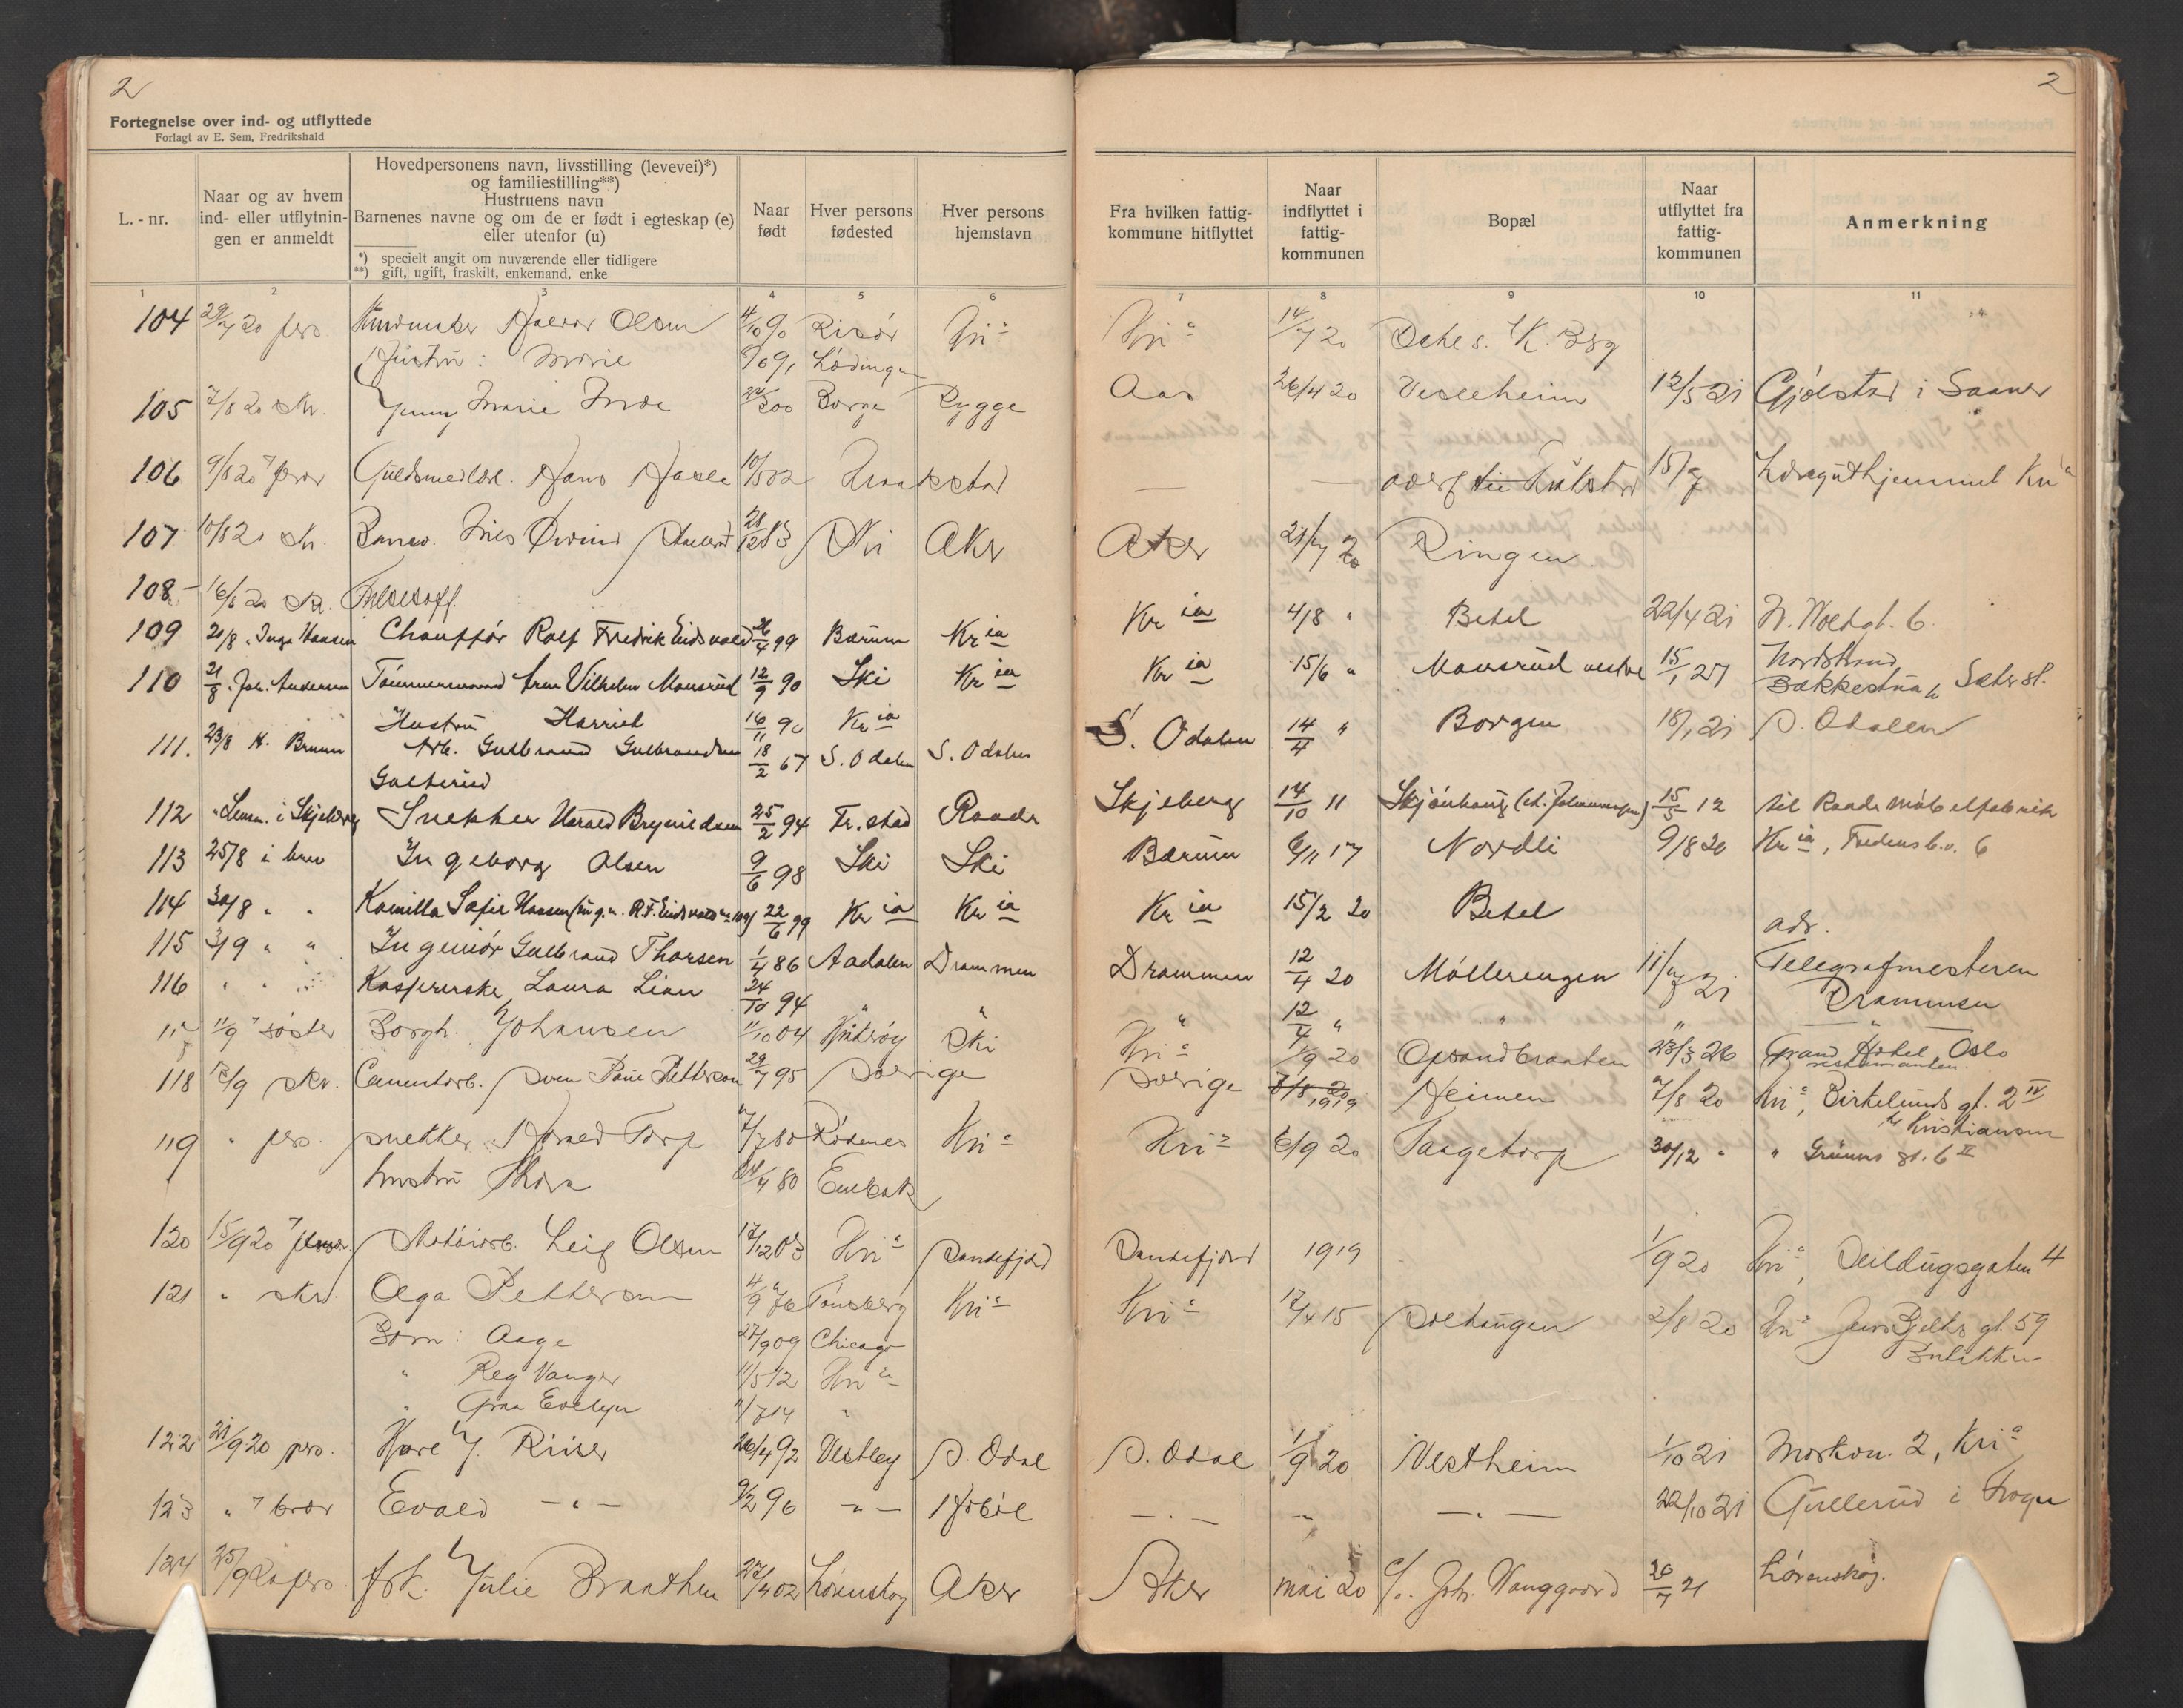 2
2
Fortegnelse over ind- og utflyttede
Forlagt av E. Sem, Fredrikshald
L.-nr.
Naar og av hvem ind- eller utflytnin-gen er anmeldt
Hovedpersonens navn, livsstilling (levevei)*)
og familiestilling**)
Hustruens navn
Barnenes navne og om de er født i egteskap (e)
eller utenfor (u)
*) specielt angit om nuværende eller tidligere
**) gift, ugift, fraskilt, enkemand, enke
Naar født
Hver persons fødested
Hver persons hjemstavn
Fra hvilken fattig-kommune hitflyttet
Naar indflyttet i fattig-kommunen
Bopæl
Naar utflyttet fra fattig-kommunen
Anmerkning
1 2 3 4 5 6 7 8 9 10 11
104 29/7 20 pers. Halvor Olsen 4/10 90 Risør Kri a Kri a 14/7 20
Hustru: Marie Lødingen
105 7/8 20 skr. Jenny Marie Moe Borge Rygge Aas 26/4 20 Vesleheim 12/5 21 Gjølstad i Saaner
106 9/8 20 Guldsmedlærl. Hans Hasle 10/5 02 Kraakstad — — 15/9
107 10/8 20 skr. Øivind 28/12 83 Ski Aker Aker 21/7 20 Ringen
108 16/8 20 skr.
109 20/8 " Inga Hansen Chauffør Rolf Fredrik Eidsvold 26/4 99 Bærum Kr ia Kr ia 4/8 " Betel 22/4 21
110 21/8 " Joh. Andersen Tømmermand Arne Vilhelm Mausrud 12/9 90 Ski Kr ia Kr ia 15/6 " Mausrud vestre 15/1 27 Nordstrand
Bakkestua Sæter st.
Hustru Harriet 16/11 90 Kr ia
111. 23/8 K. Bruun Arb. Gulbrand Gulbrandsen 18/2 67 S. Odalen S. Odalen S. Odalen 14/4 " Borgen 16/1 21 S. Odalen
112 " Lensm. i Skjeberg Snekker Harald Brynildsen 25/2 94 Fr.stad Raade Skjeberg 14/10 11 Skjønhaug 15/5 12 til Raade Møbelfabrik
113 25/8 i brev Ingeborg Olsen 9/6 98 Ski Ski Bærum 6/11 17 Nordli 9/8 20 Kr ia, Fredensb.v. 6
114 30/8 " " Kamilla Sofie Hansen 22/6 99 Kr ia Kr ia Kr ia 15/2 20 Betel
115 3/9 " " Ingeniør Gulbrand Thorsen 1/4 86 Aadalen Drammen Drammen 12/4 20 Møllerengen 11/7 21 adr.
Telegrafmesteren
Drammen
116 " " Laura Lian 24/10 94 " " " 12/4 " " " — " —
117 11/9 søster Borgh. Johansen 11/10 04 Ski Kri a 1/9 20 Opsandbraaten 23/3 26 Grand Hotel, Oslo
restauranten
118 12/9 skr. Cementarb. Sven Petterson 29/7 95 Sverige Sverige 1919 Heimen 7/8 20 Kri a, Birkelunds gt. 2 IV
Kristiansen
119 " pers. Snekker Harald Torp 7/7 80 Rødenes Kri a Kri a 6/9 20 Taagetorp 30/12 " " Grüners gt. 6 II
hustru Thora 24/4 80 Enebak
120 15/9 20 Leif Olsen 17/12 03 Kri a Sandefjord Sandefjord 1919 1/9 20 Kri a, Seildugsgaten 4
121 " skr. Olga Petterson 4/9 76 Tønsberg Kri a Kri a 17/4 15 Solhaugen 2/8 20 Kri a Jens Bjelkes gt. 59
Butikken
Barn: Aage 27/9 09 Chicago
" Reg Vanger 11/5 12 Kri a
" Evelyn 11/7 14 "
122 21/9 20 pers. Kåre J. Riiser 26/4 92 Vestby S. Odal S. Odal 1/9 20 Vestheim 1/10 21 2, Kri a
123 " bror Evald — " — 9/2 96 — " — Hobøl — " — " — " — 22/10 21 Gullerud i
124 25/9 20 pers. frk. Julie Braathen 27/4 02 Lørenskog Aker Aker mai 20 c/o. Joh. Wanggaard 26/7 21 Lørenskog.